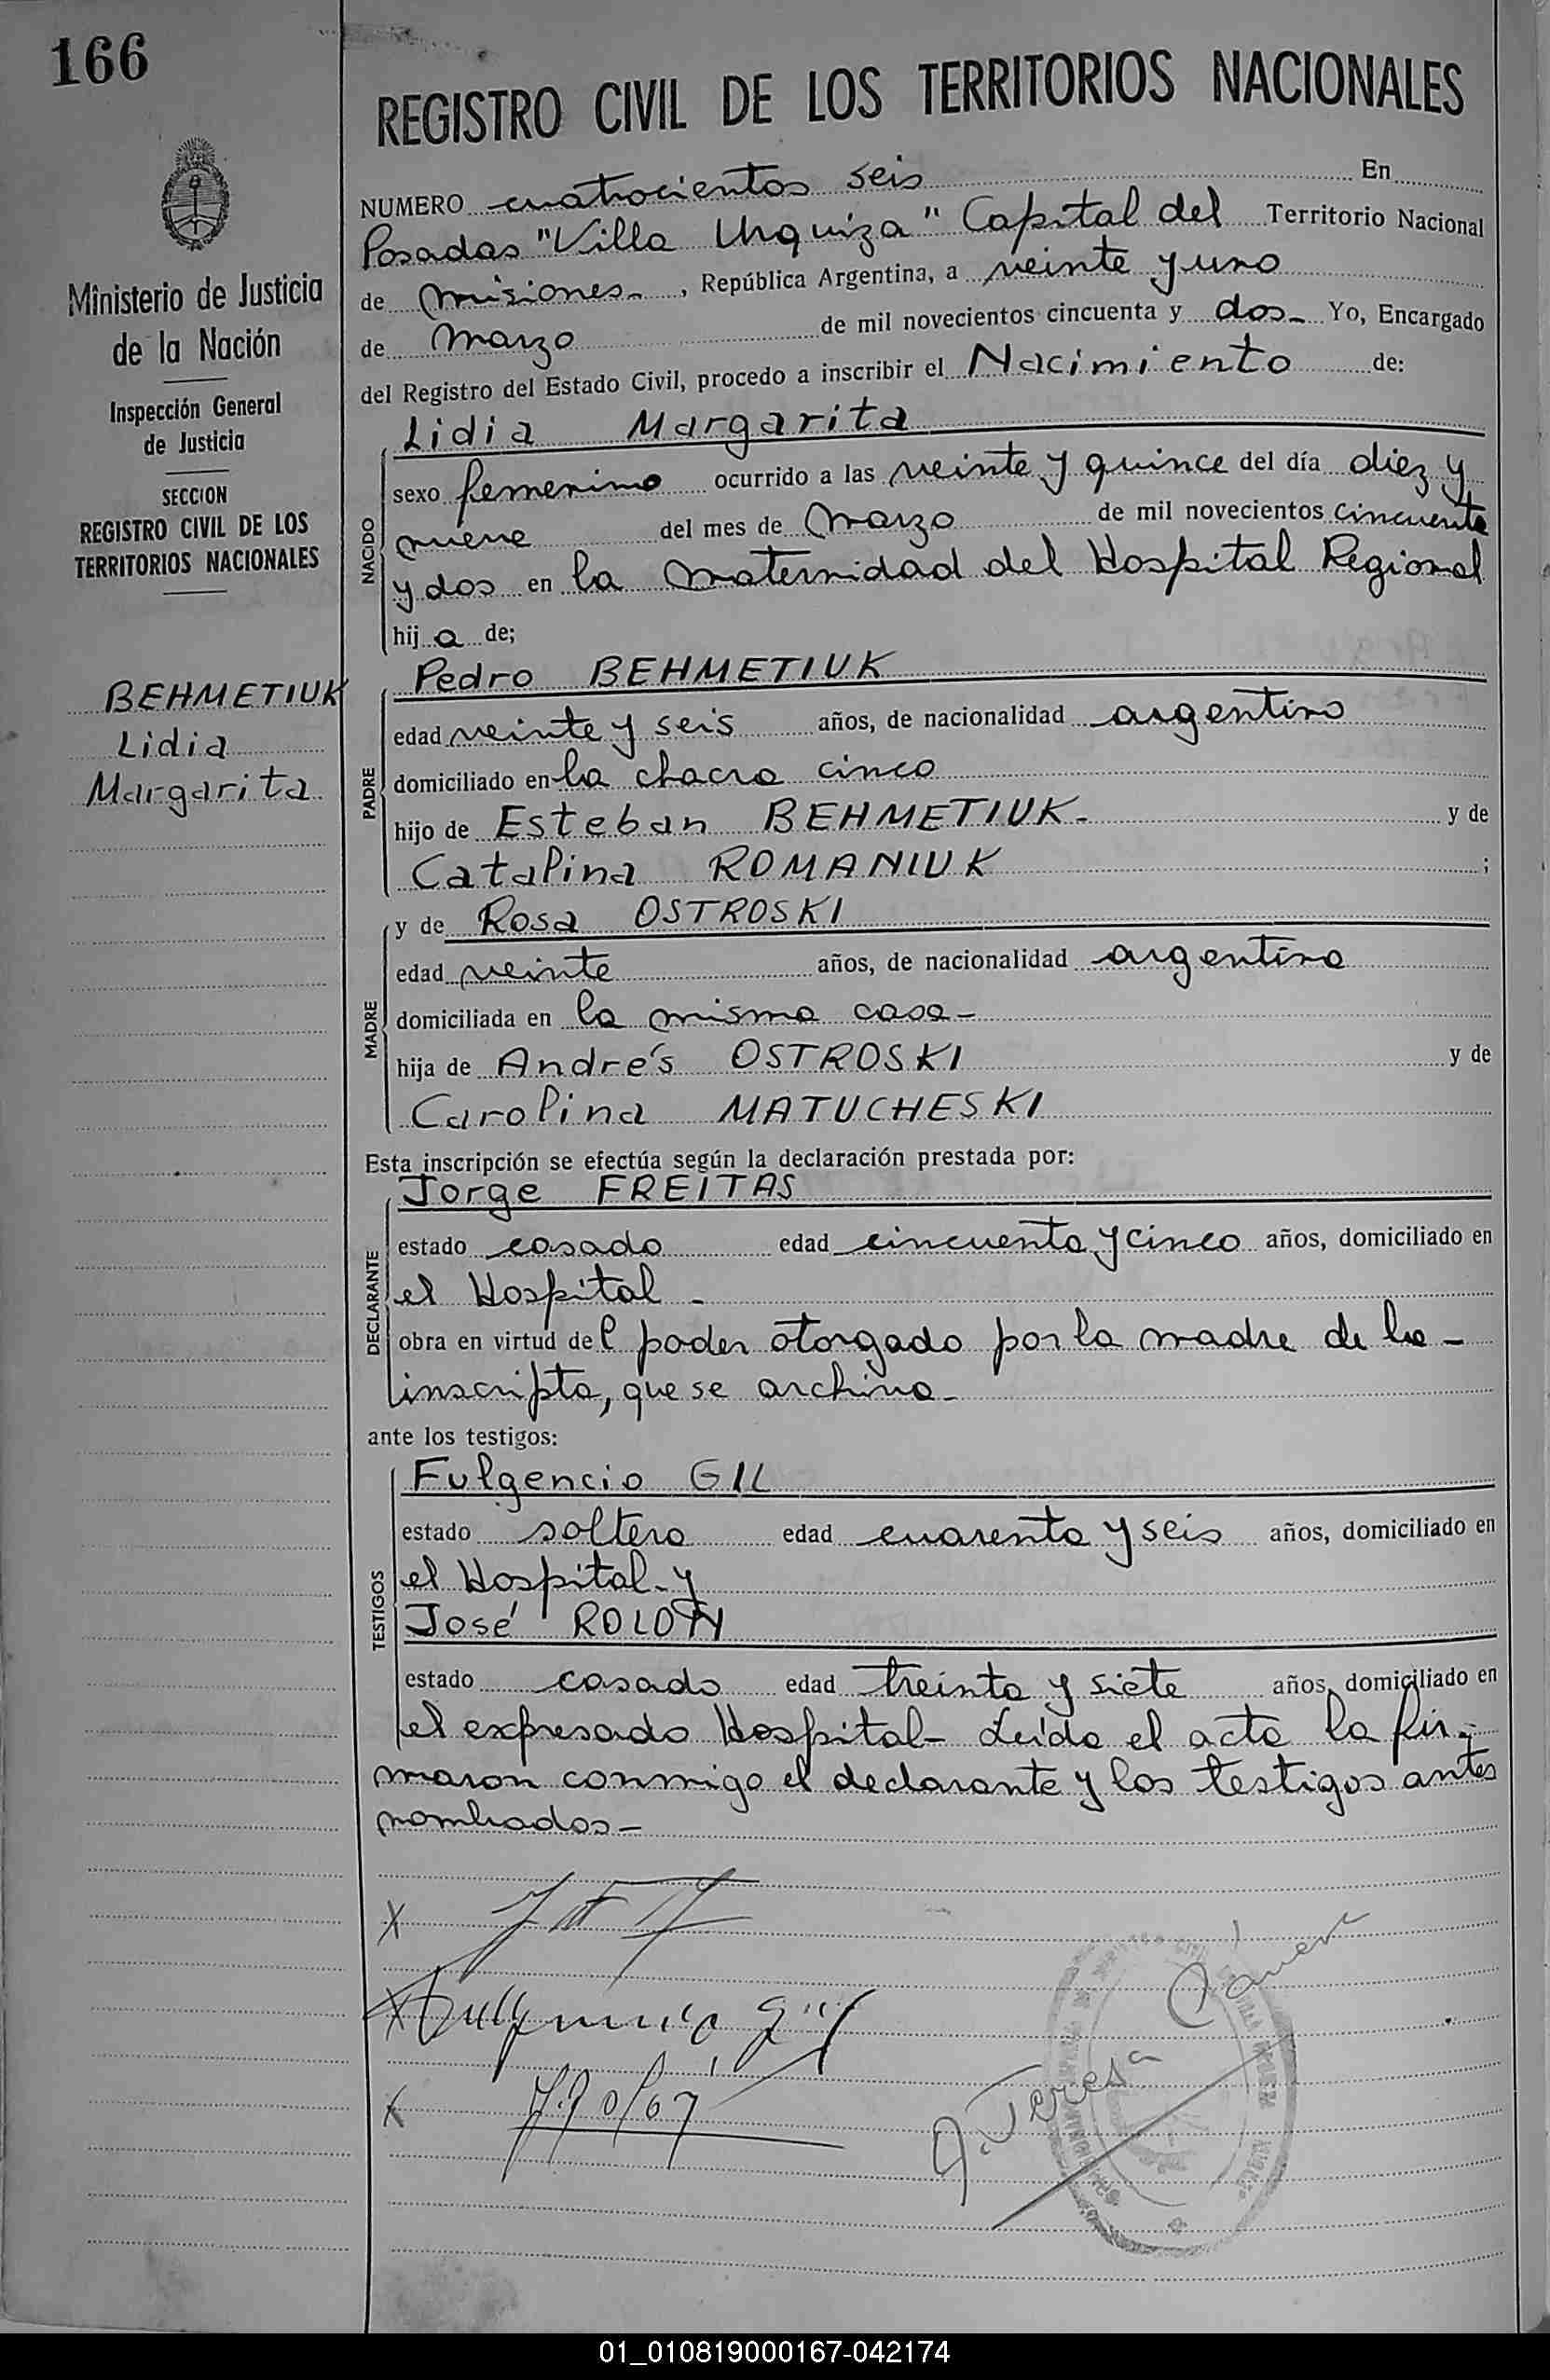 166
Ministerio de Justicia
de la Nación
Inspección General
de Justicia
SECCION
REGISTRO CIVIL DE LOS
TERRITORIOS NACIONALES
BEHMETIUK
Lidia
Margarita
REGISTRO CIVIL DE LOS TERRITORIOS NACIONALES
NUMERO cuatrocientos seis En
Posadas "Villa Urquiza" Capital del Territorio Nacional
de Misiones-, República Argentina, a veinte y uno
de Marzo de mil novecientos cincuenta y dos- Yo, Encargado
del Registro del Estado Civil, procedo a inscribir el Nacimiento de:
NACIDO
Lidia Margarita
sexo femenino ocurrido a las veinte y quince del día diez y
nueve del mes de Marzo de mil novecientos cincuenta
y dos en la Maternidad del Hospital Regional
hij a de;
PADRE
Pedro BEHMETIUK
edad veinte y seis años, de nacionalidad argentino
domiciliado en la chacra cinco
hijo de Esteban BEHMETIUK- y de
Catalina ROMANIUK ;
MADRE
y de Rosa OSTROSKI
edad veinte años, de nacionalidad argentina
domiciliada en la misma casa-
hija de Andrés OSTROSKI y de
Carolina MATUCHESKI
Esta inscripción se efectúa según la declaración prestada por:
DECLARANTE
Jorge FREITAS
estado casado edad cincuenta y cinco años, domiciliado en
el Hospital-
obra en virtud del poder otorgado por la madre de la-
inscripta, que se archiva-
ante los testigos:
TESTIGOS
Fulgencio GIL
estado soltero edad cuarenta y seis años, domiciliado en
el Hospital-y
José ROLON
estado casado edad treinta y siete años, domiciliado en
el expresado Hospital- Leída el acta la fir-
maron conmigo el declarante y los testigos antes
nombrados-
X
X Fulgencio Gil
X
J. Teresa
01_010819000167-042174